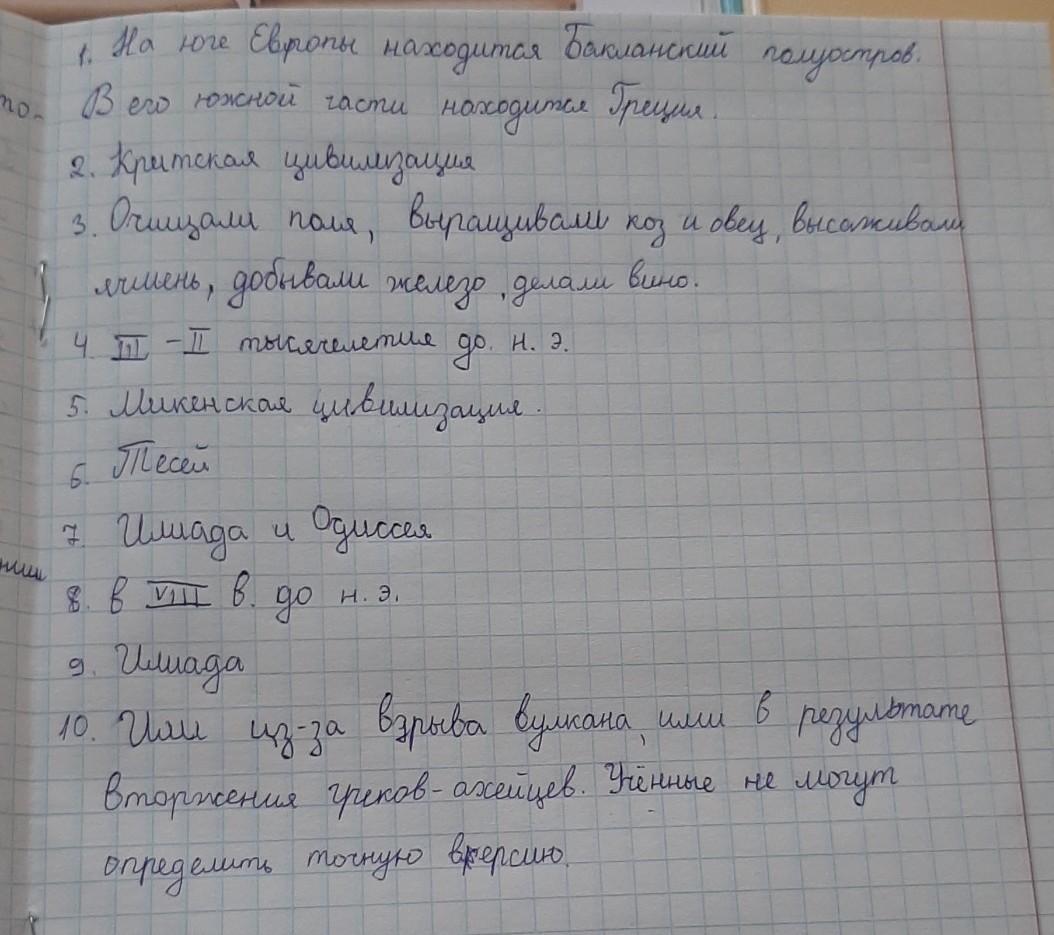 1. На юге Европы находится Бакланский полуостров.
то.
В его южной части находится Греция.
2. Критская цивилизация
3. Очищали поля, выращивали коз и овец, высаживали
ячмень, добывали железо, делали вино.
4 III - II тысячелетия до. н. э.
5. Микенская цивилизация.
6. Тесей
7. Илиада и Одиссея
8. в VIII в. до н. э.
9. Илиада
10. Или из-за взрыва вулкана, или в результате
вторжения греков-ахейцев. Учённые не могут
определить точную версию.